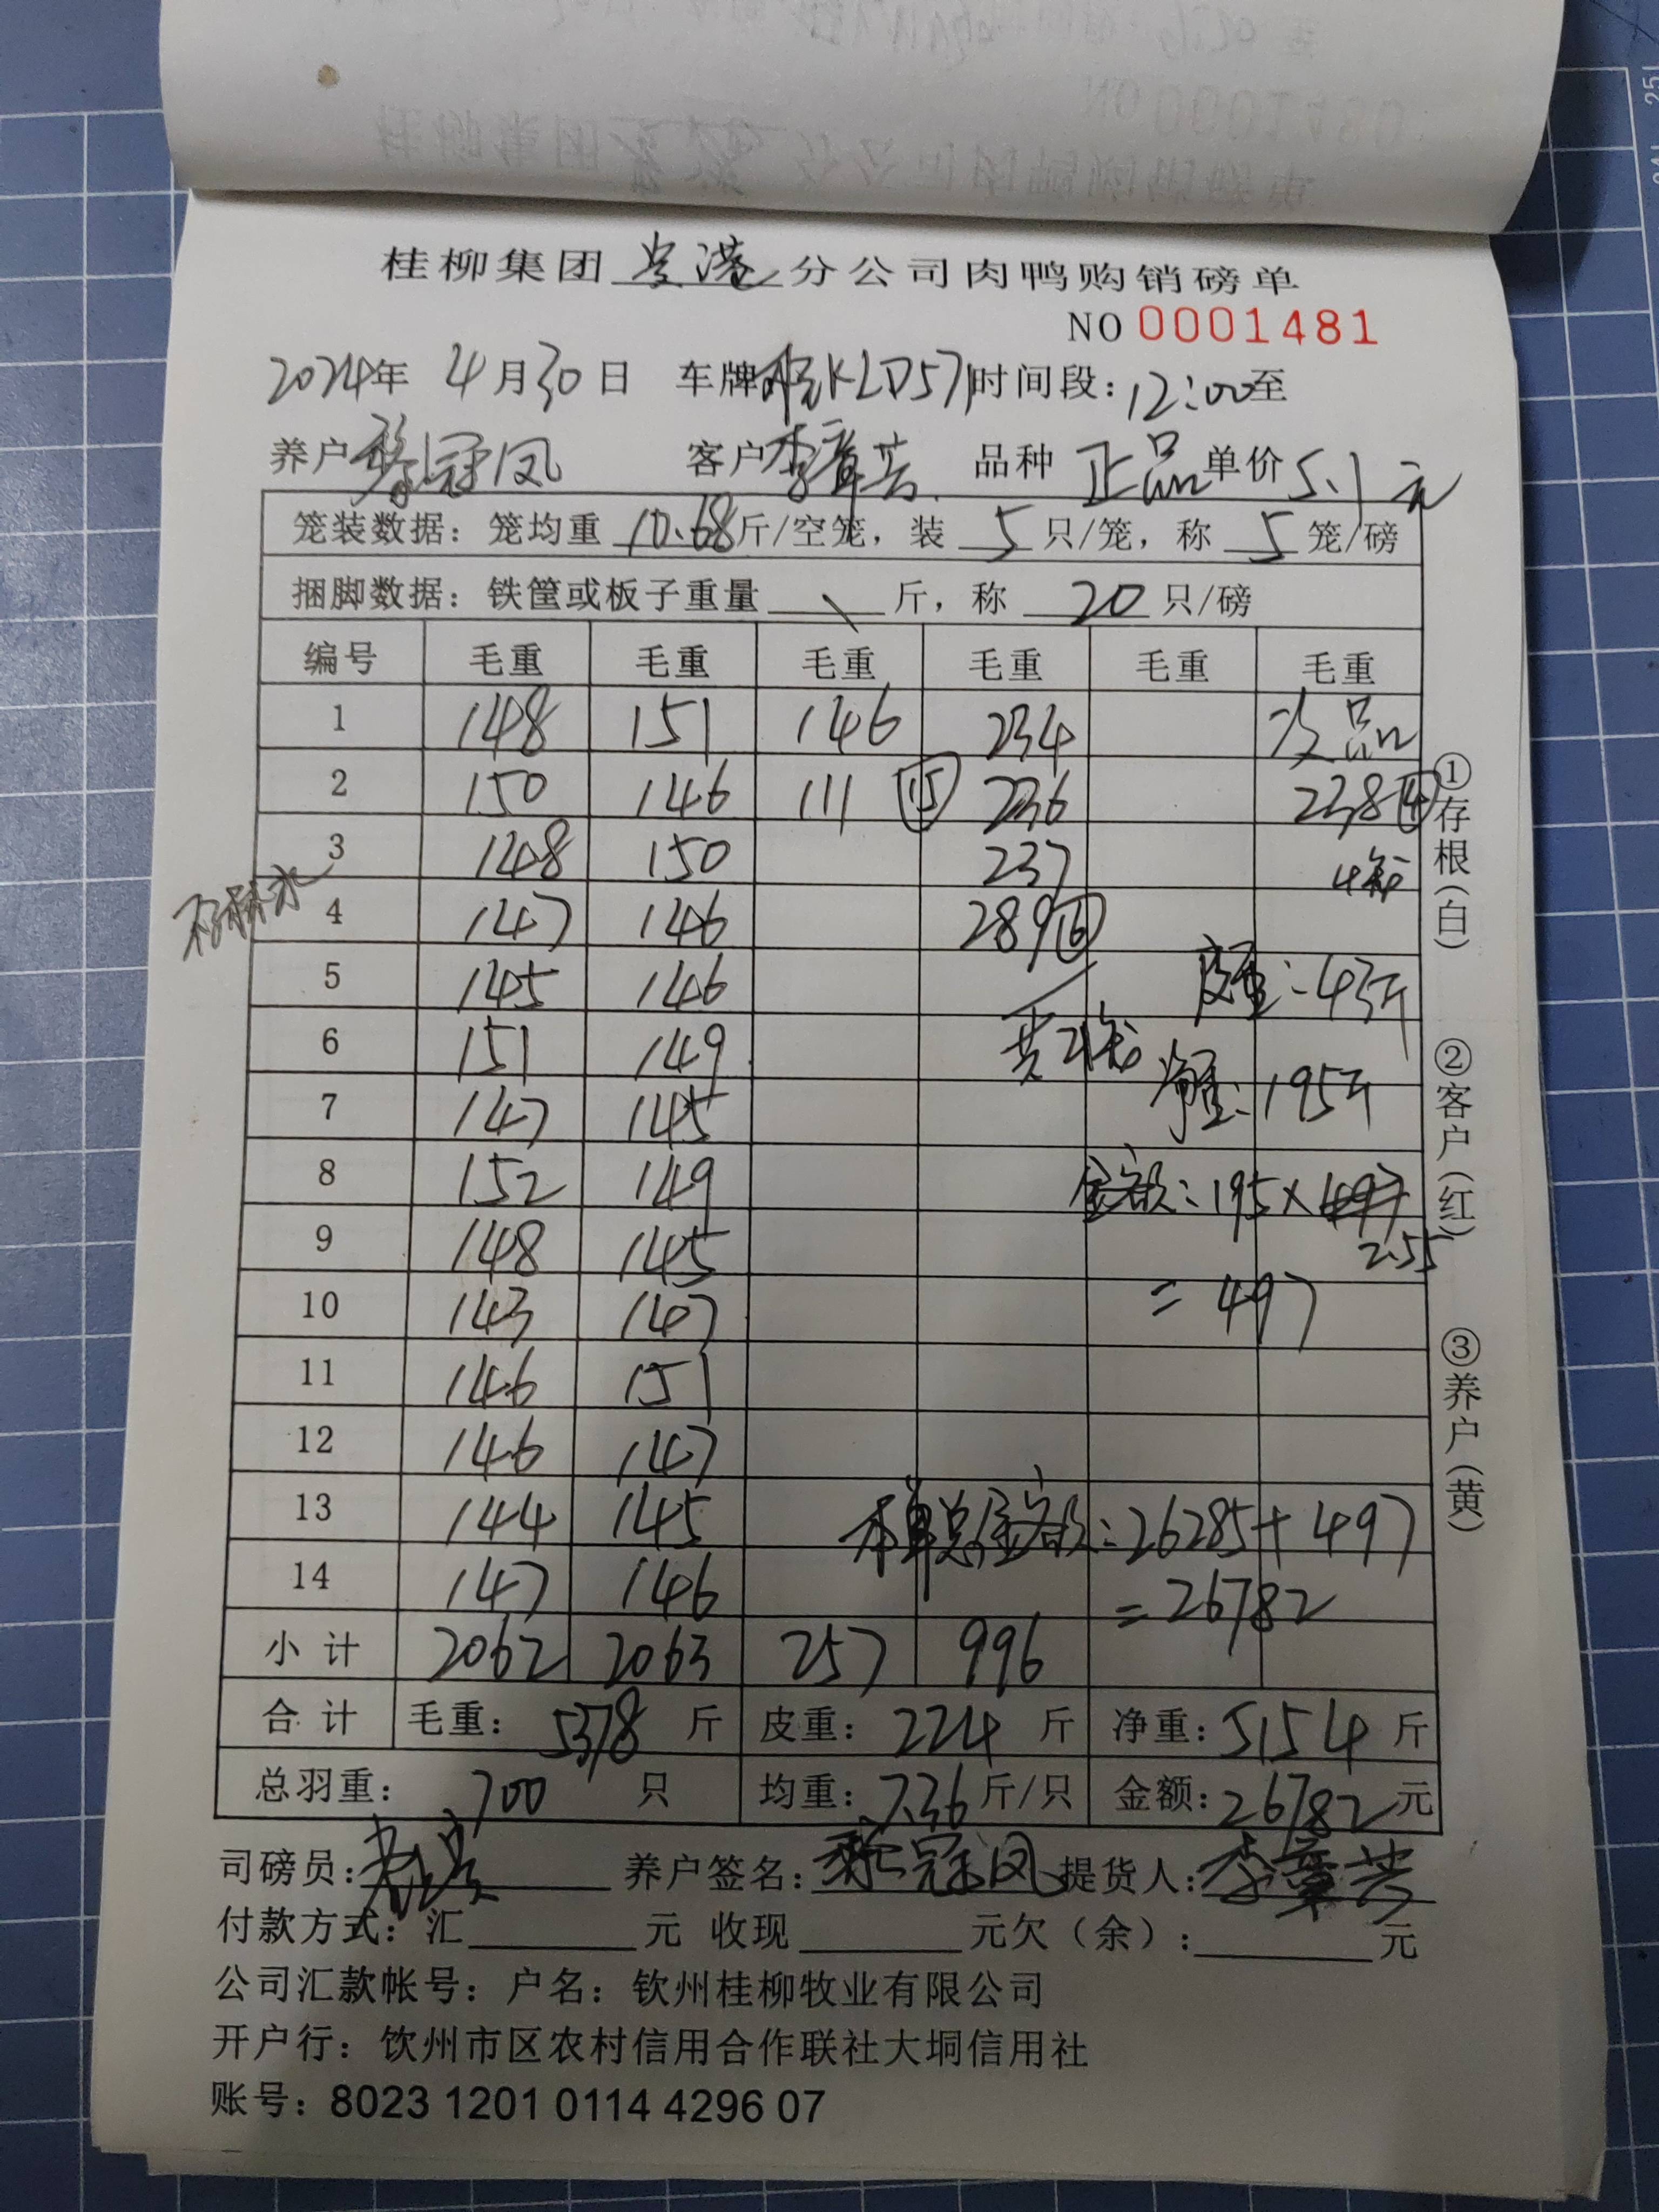 桂柳集团贵港分公司肉鸭购销磅单
NO 0001481
2024年 4月30日 车牌桂KLD571时间段：12:00至
养户黎冠凤 客户李章芸 品种 正品 单价5.1元
笼装数据：笼均重 10.68斤/空笼，装 5 只/笼，称 5 笼/磅
捆脚数据：铁筐或板子重量 \ 斤，称 20 只/磅
编号 毛重 毛重 毛重 毛重 毛重 毛重
1 148 151 146 234 次品
2 150 146 111 ⑮ 236 238④
3 148 150 237 4笼
4 147 146 289⑥
5 145 146 皮重：43斤
6 151 149 共21笼
7 147 145 净重：195斤
8 152 149 金额：195×
9 148 145 2.55
10 143 147 =497
11 146 151
12 146 147
13 144 145 本单总金额：26285+497
14 147 146 =26782
小计 2062 2063 257 996
合计 毛重：5378 斤 皮重：224 斤 净重：5154 斤
总羽重：700 只 均重：7.36斤/只 金额：26782元
①存根（白）
②客户（红）
③养户（黄）
司磅员： 养户签名：黎冠凤 提货人：李章芸
付款方式：汇 元 收现 元欠（余）： 元
公司汇款帐号：户名：钦州桂柳牧业有限公司
开户行：钦州市区农村信用合作联社大垌信用社
账号：8023 1201 0114 4296 07